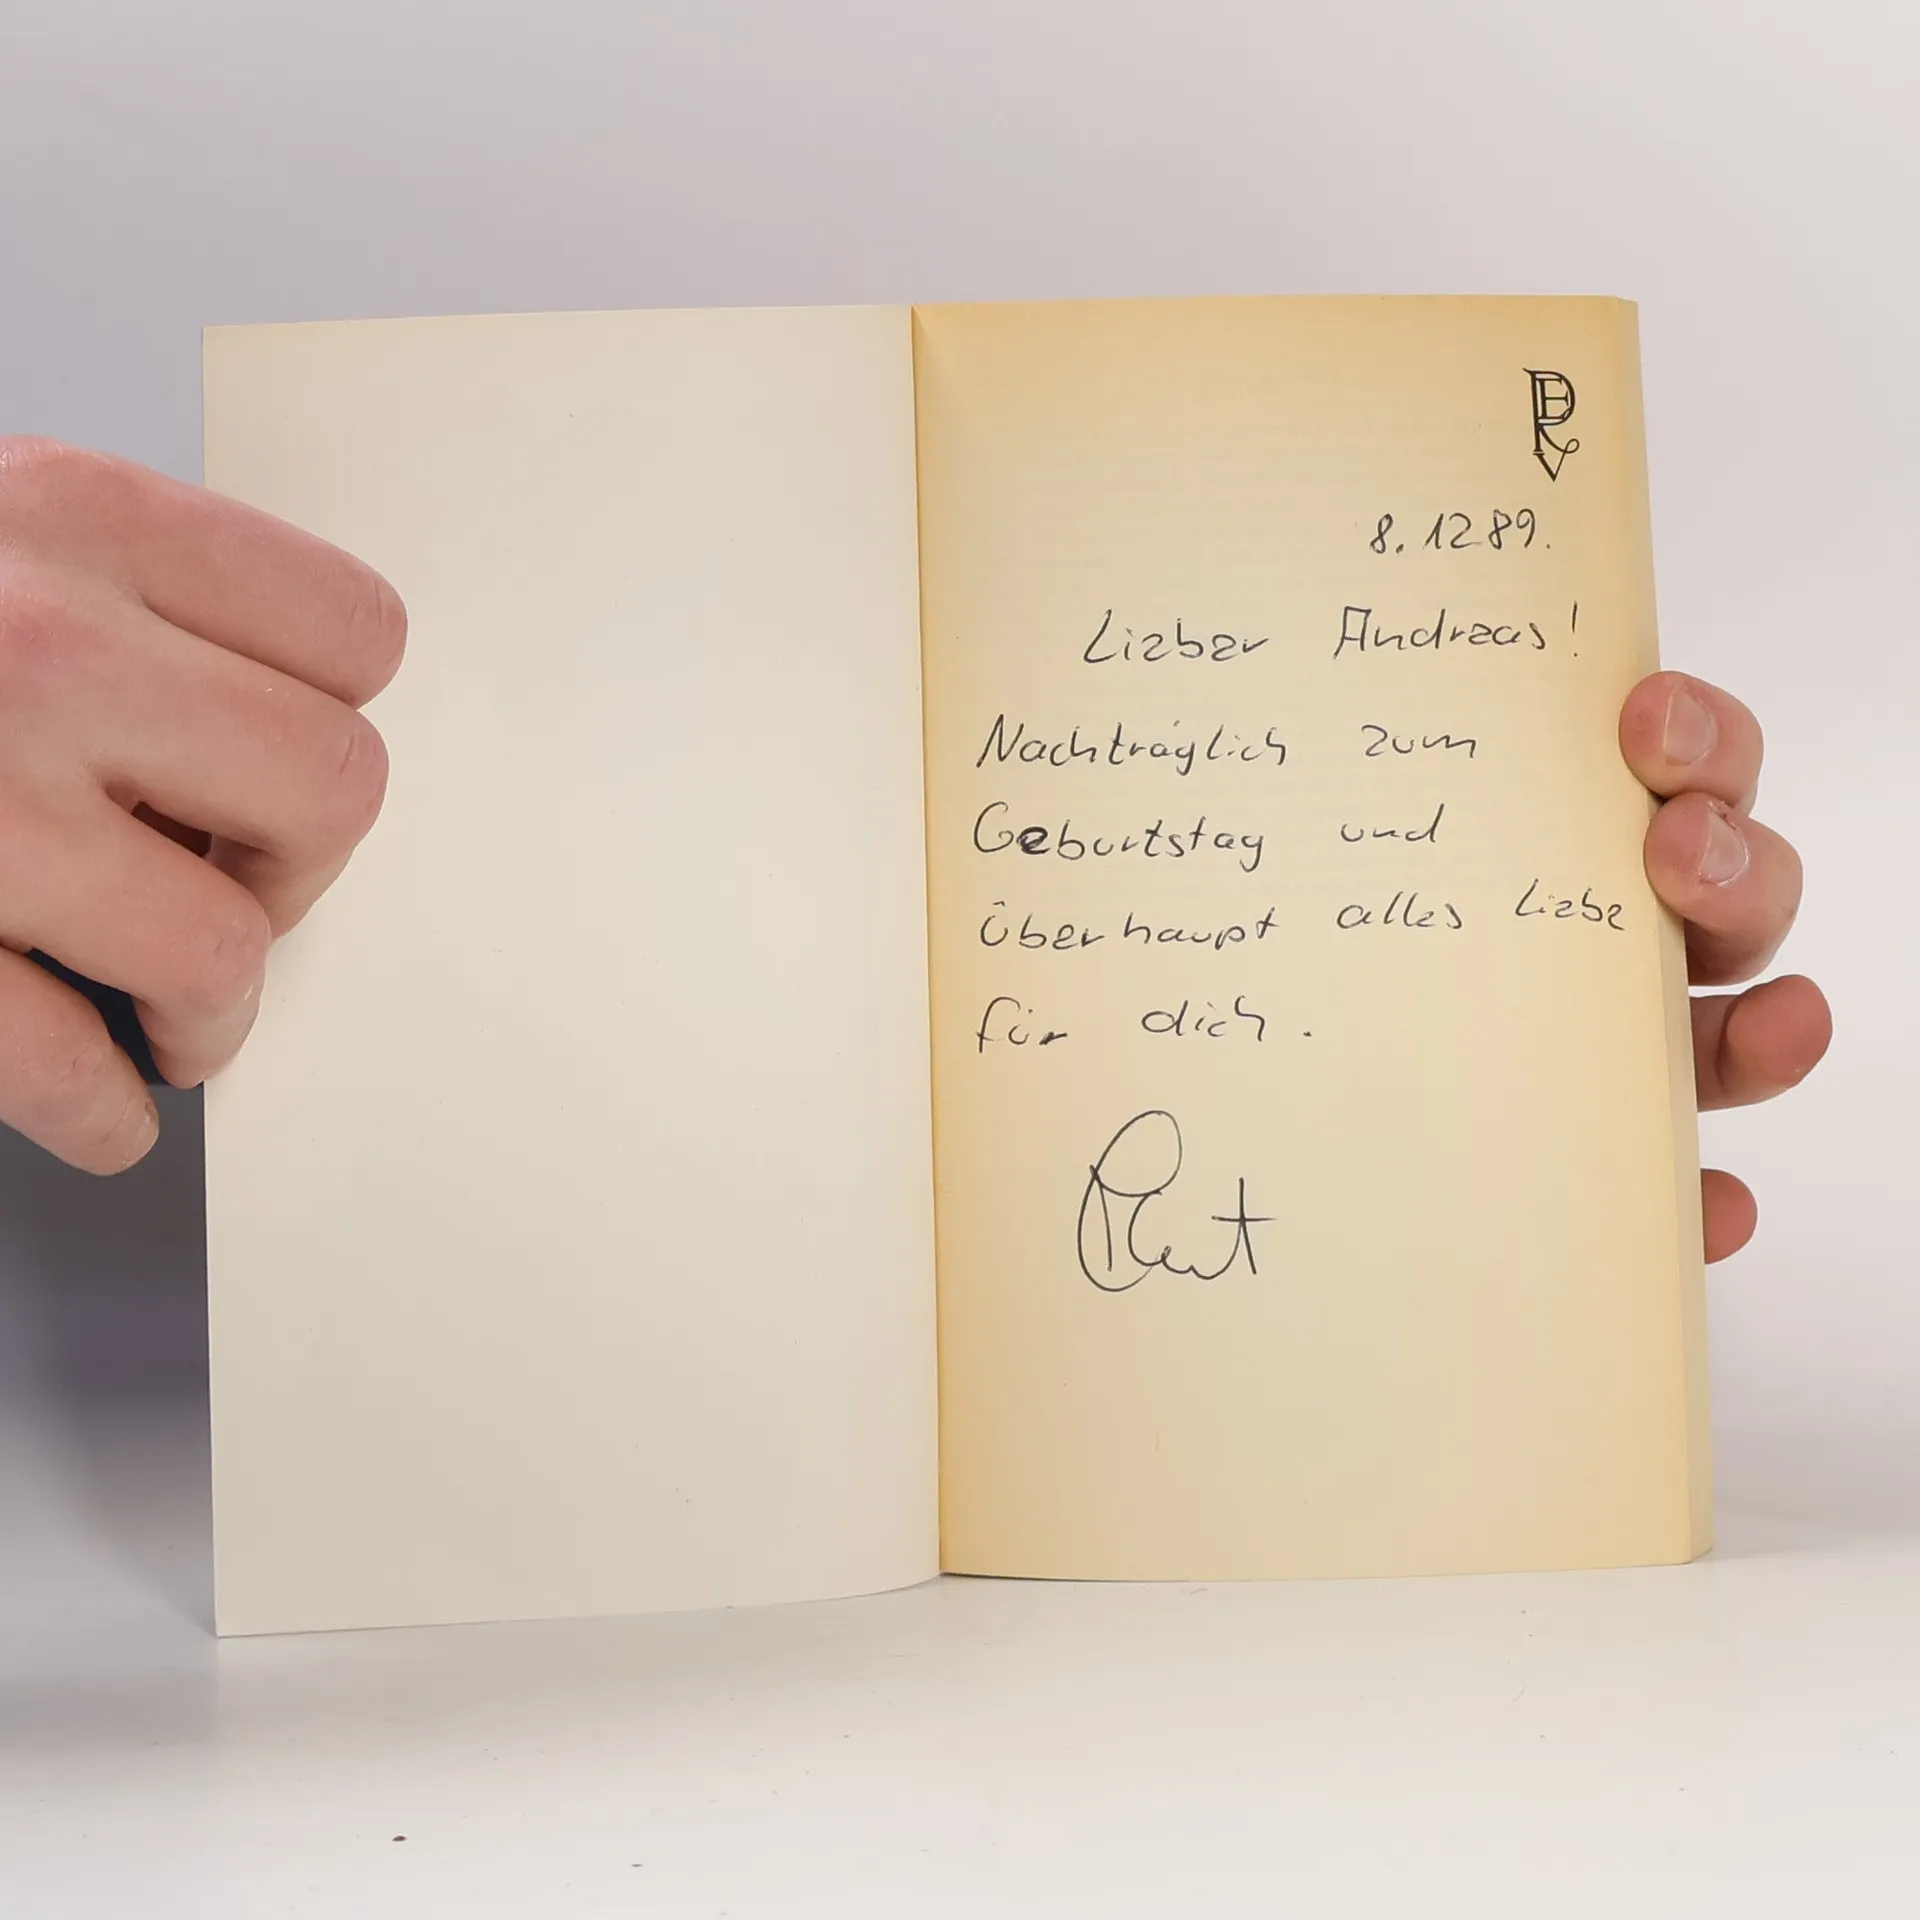 8.12 89.
Lieber Andreas!
Nachträglich zum
Geburtstag und
überhaupt alles Liebe
für dich.